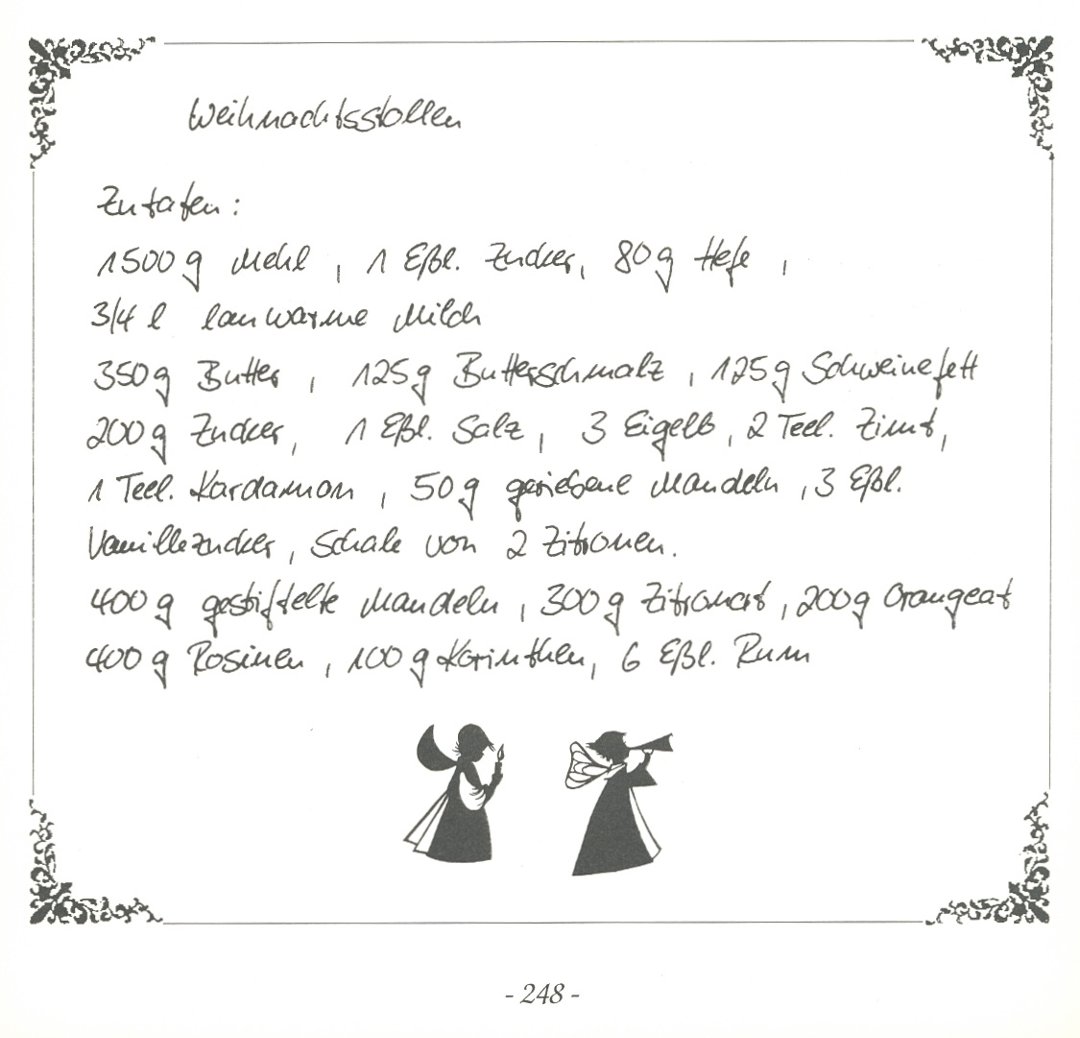 Weihnachtsstollen
Zutaten:
1500g Mehl, 1 Eßl. Zucker, 80g Hefe,
3/4 l lauwarme Milch
350g Butter, 125g Butterschmalz, 125g Schweinefett
200g Zucker, 1 Eßl. Salz, 3 Eigelb, 2 Teel. Zimt,
1 Teel. Kardamon, 50g geriebene Mandeln, 3 Eßl.
Vanillezucker, Schale von 2 Zitronen.
400g gestiftelte Mandeln, 300g Zitronat, 200g Orangeat
400g Rosinen, 100g Korinthen, 6 Eßl. Rum
- 248 -